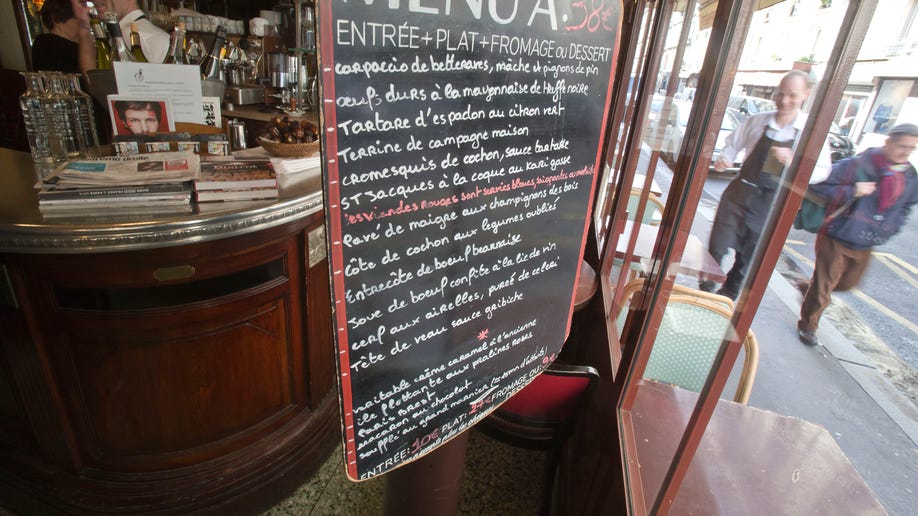 MENU A. 38€
ENTRÉE+PLAT+FROMAGE OU DESSERT
carpaccio de betteraves, mâche et pignons de pin
oeufs durs à la mayonnaise de truffe noire
Tartare d'espadon au citron vert
Terrine de campagne maison
cromesquis de cochon, sauce tartare
ST Jacques à la coque au kari gosse
les viandes Rouges sont servies bleues, saignantes ou
Pavé de maigre aux champignons des bois
Côte de cochon aux legumes oubliés
Entrecôte de boeuf bearnaise
Joue de boeuf confite à la lie de vin
cerf aux airelles, purée de celeri
Tête de veau sauce gribiche
*
veritable crème caramel à l'ancienne
île flottante aux pralines roses
PARIS BREST
macaron au chocolat
soufflé au grand marnier
ENTRÉE: 10€ PLAT: FROMAGE OU
DESSERT 9€